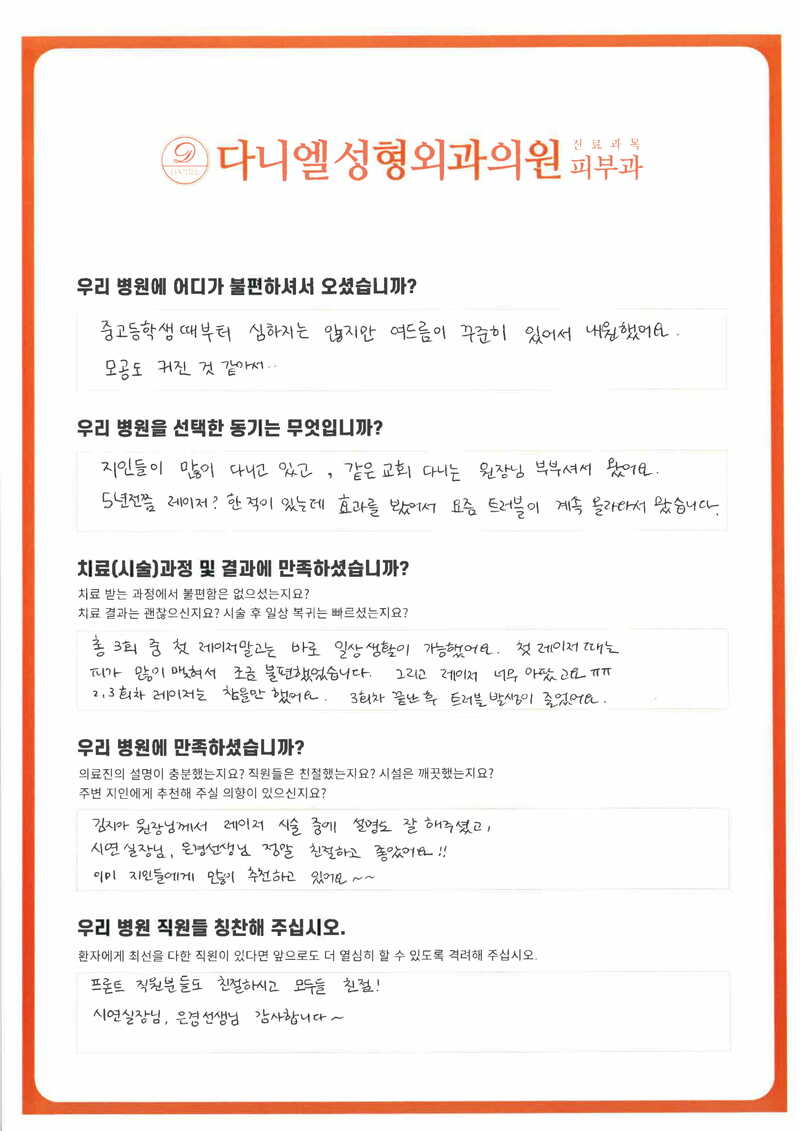 다니엘성형외과의원 진료과목 피부과
우리 병원에 어디가 불편하셔서 오셨습니까?
중고등학생때부터 심하지는 않지만 여드름이 꾸준히 있어서 내원했어요.
모공도 커진 것 같아서..
우리 병원을 선택한 동기는 무엇입니까?
지인들이 많이 다니고 있고, 같은교회 다니는 원장님 부부셔서 왔어요.
5년전쯤 레이저? 한적이 있는데 효과를 봤어서 요즘 트러블이 계속 올라와서 왔습니다.
치료(시술)과정 및 결과에 만족하셨습니까?
치료 받는 과정에서 불편함은 없으셨는지요?
치료 결과는 괜찮으신지요? 시술 후 일상 복귀는 빠르셨는지요?
총 3회 중 첫 레이저말고는 바로 일상생활이 가능했어요. 첫 레이저때는
피가 많이 맺혀서 조금 불편했었습니다. 그리고 레이저 너무 아팠고요 ㅠㅠ
2,3회차 레이저는 참을만 했어요. 3회차 끝난 후 트러블 발생이 줄었어요.
우리 병원에 만족하셨습니까?
의료진의 설명이 충분했는지요? 직원들은 친절했는지요? 시설은 깨끗했는지요?
주변 지인에게 추천해 주실 의향이 있으신지요?
김지아 원장님께서 레이저 시술 중에 설명도 잘 해주셨고,
시연실장님, 은경선생님 정말 친절하고 좋았어요!!
이미 지인들에게 많이 추천하고 있어요~~
우리 병원 직원들 칭찬해 주십시오.
환자에게 최선을 다한 직원이 있다면 앞으로도 더 열심히 할 수 있도록 격려해 주십시오.
프론트 직원분들도 친절하시고 모두들 친절!
시연실장님, 은경선생님 감사합니다~